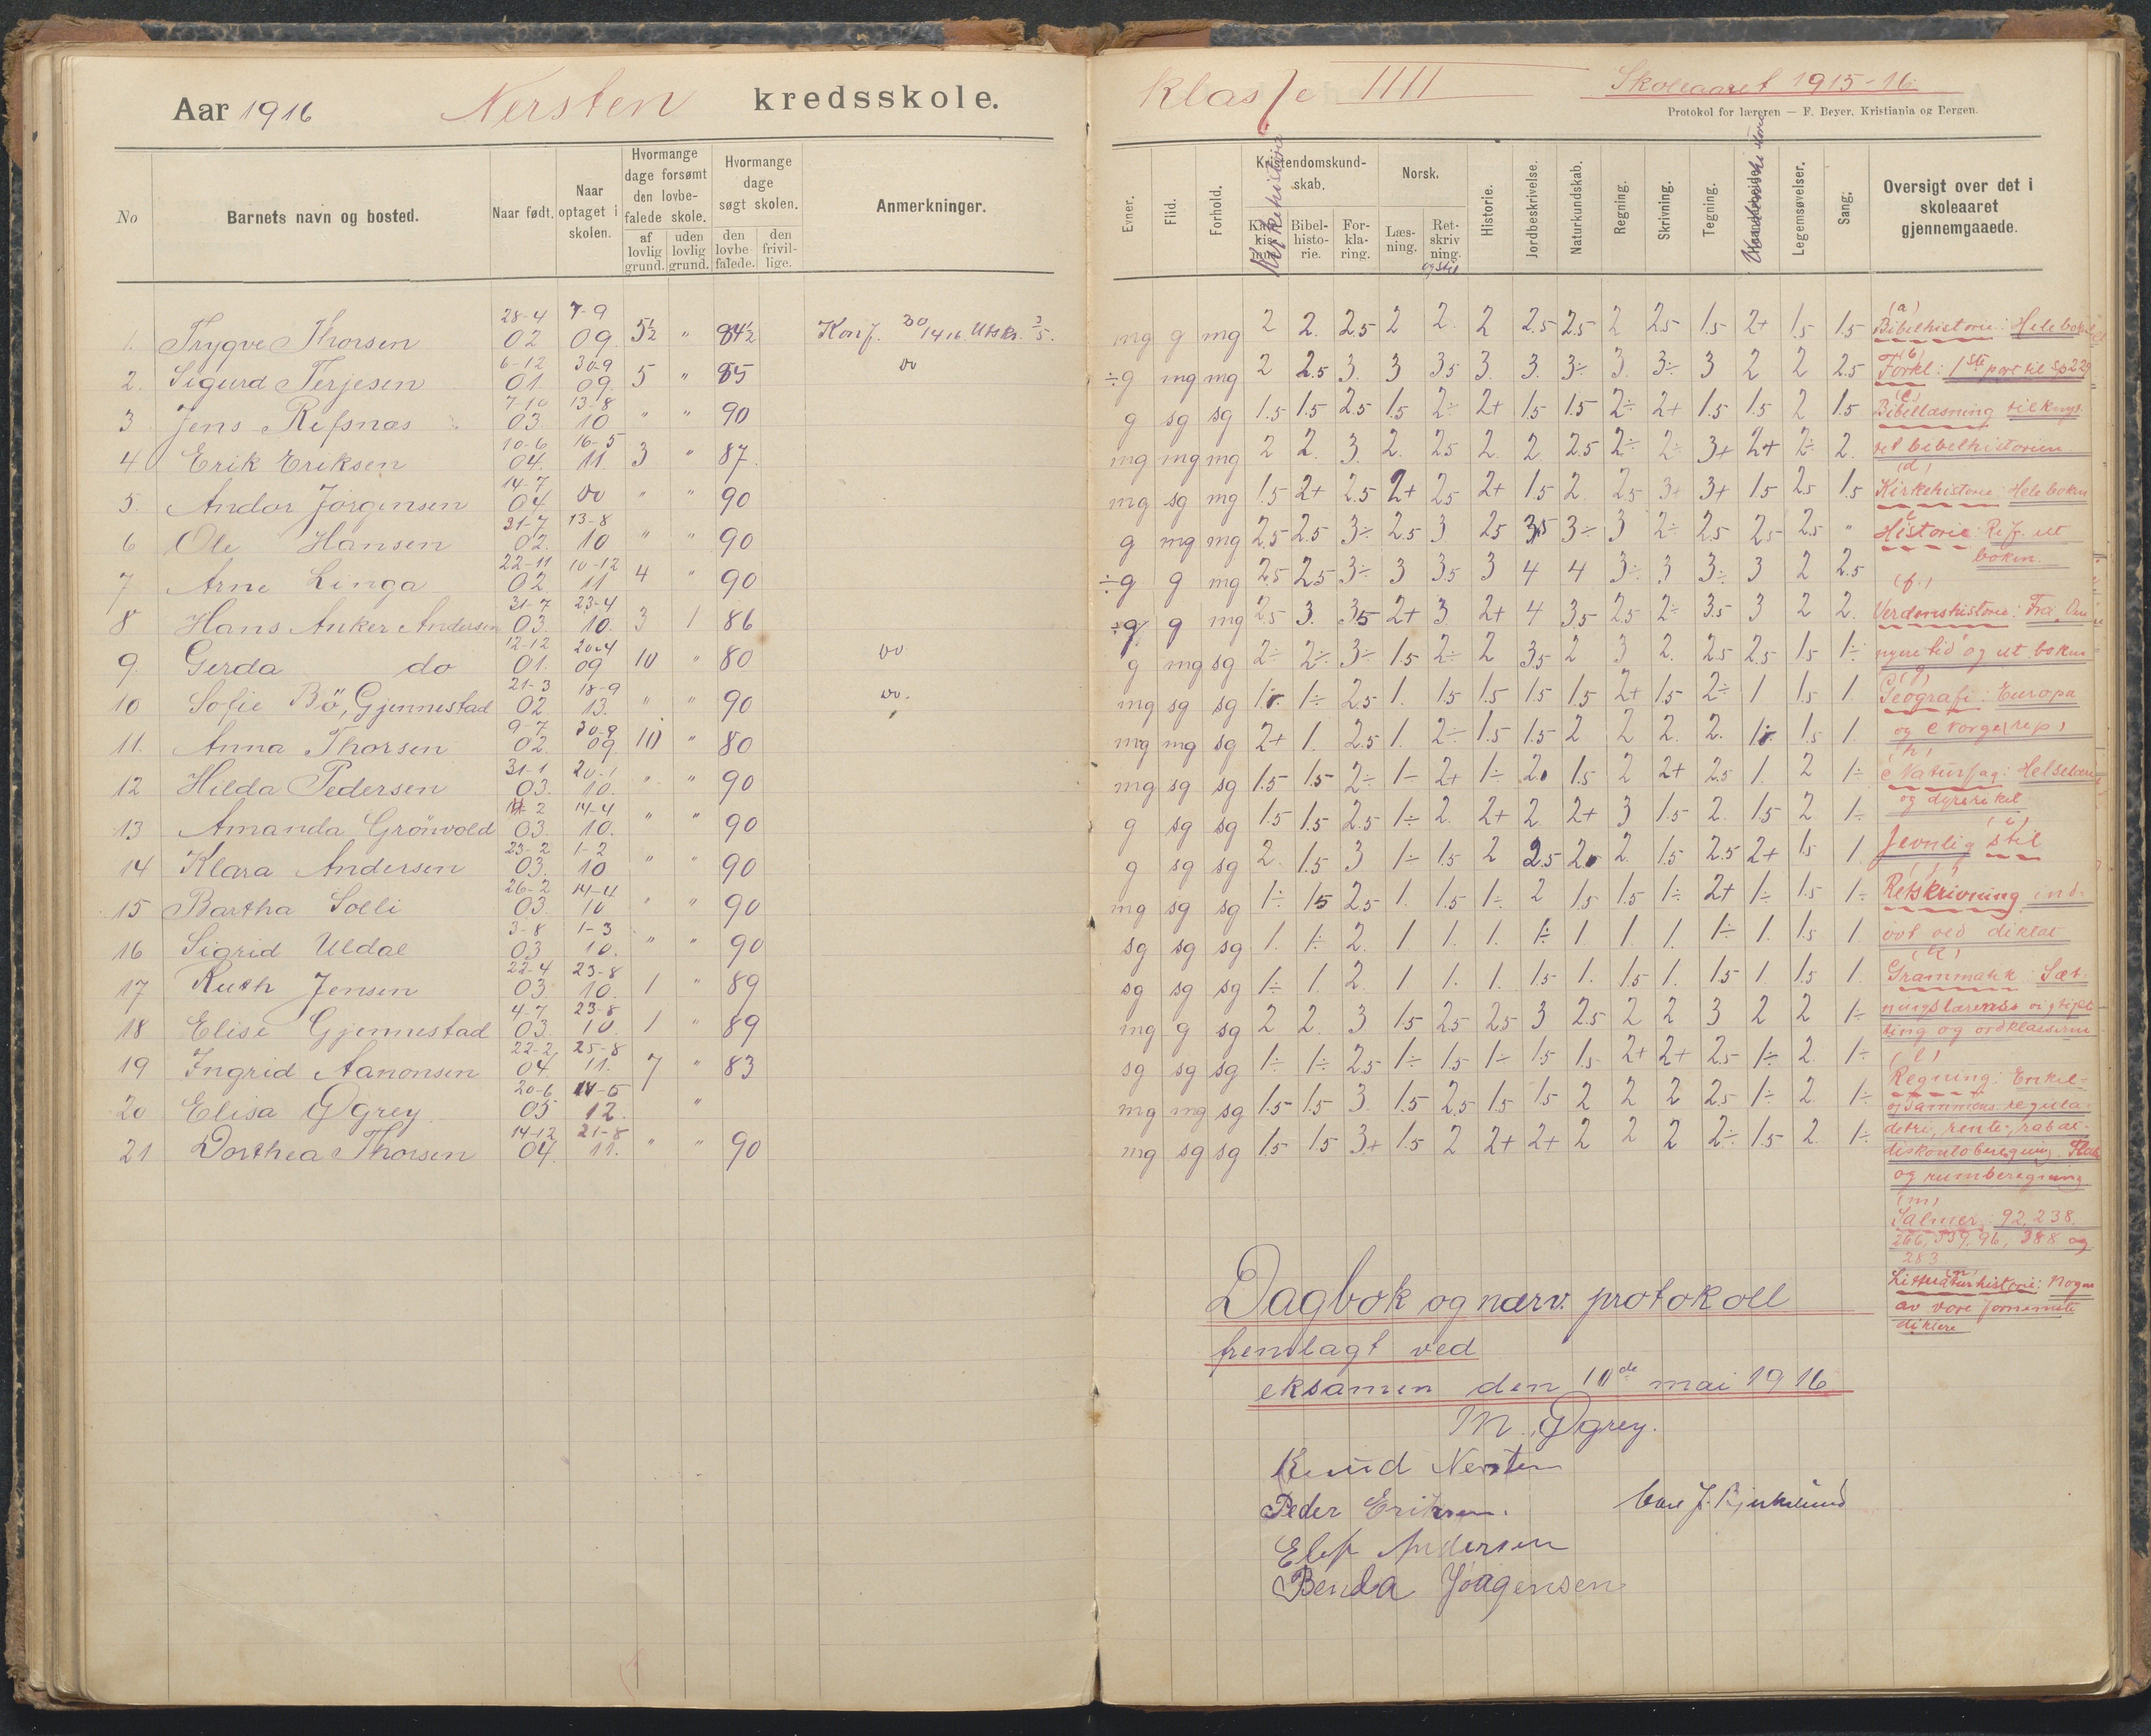 Aar 1916 Nersten kredsskole.
No
Barnets navn og bosted.
Naar født.
Naar optaget i skolen.
Hvormange dage forsømt den lovbefalede skole.
af lovlig grund.
uden lovlig grund.
Hvormange dage søgt skolen.
den lovbefalede.
den frivillige.
Anmerkninger.
1. Trygve Thorsen 28-4 02 7-9 09 5½ " 84½ Konf. 30/4 16. Utskr. 3/5.
2. Sigurd Terjesen 6-12 01. 30-9 09. 5 " 85 do
3 Jens Refsnæs 7-10 03. 13-8 10 " " 90
4 Erik Eriksen 10-6 04. 16-5 11 3 " 87.
5. Andor Jörgensen 14-7 04 do " " 90
6 Ole Hansen 31-7 02. 13-8 10 " " 90
7 Arne Linga 22-11 02. 10-12 11 4 " 90
8 Hans Anker Andersen 31-7 03. 23-4 10. 3 1 86
9. Gerda do 12-12 01. 20-4 09 10 " 80 do
10 Sofie Bö, Gjennestad 21-3 02 18-9 13. " " 90 do.
11. Anna Thorsen 9-7 02. 30-9 09 10 " 80
12 Hilda Pedersen 31-1 03. 20-1 10. " " 90
13 Amanda Grönvold 11-2 03. 14-4 10. " " 90
14 Klara Andersen 23-2 03. 1-2 10 " " 90
15 Bartha Solli 26-2 03. 14-4 10 " " 90
16 Sigrid Uldal 3-8 03 1-3 10. " " 90
17 Ruth Jensen 22-4 03 23-8 10. 1 " 89
18 Elise Gjennestad 4-7 03. 23-8 10. 1 " 89
19 Ingrid Aanonsen 22-2 04 25-8 11. 7 " 83
20 Elisa Øgrey 20-6 05 12. "
21 Dorthea Thorsen 14-12 04. 21-8 11. " " 90
Klasse IIII Skoleaaret 1915-16
Protokol for læreren — F. Beyer, Kristiania og Bergen.
Evner.
Flid.
Forhold.
Kristendomskundskab.
Kirkehistorie
Bibelhistorie.
Forklaring.
Norsk.
Læsning.
Retskrivning.
og stil
Historie.
Jordbeskrivelse.
Naturkundskab.
Regning.
Skrivning.
Tegning.
Legemsøvelser.
Sang.
Oversigt over det i skoleaaret gjennemgaaede.
mg g mg 2 2. 2.5 2 2. 2 2.5 2.5 2 2.5 1.5 2+ 1.5 1.5
÷g mg mg 2 2.5 3. 3 3.5 3. 3. 3÷ 3. 3÷ 3 2 2 2.5
g sg sg 1.5 1.5 2.5 1.5 2÷ 2+ 1.5 1.5 2÷ 2+ 1.5 1.5 2 1.5
mg mg mg 2 2. 3. 2. 2.5 2. 2 2.5 2÷ 2÷ 3+ 2+ 2÷ 2.
mg sg mg 1.5 2+ 2.5 2+ 2.5 2+ 1.5 2. 2.5 3+ 3+ 1.5 2.5 1.5
g mg mg 2.5 2.5 3÷ 2.5 3. 2.5 3.5 3÷ 3 2÷ 2.5 2.5 2.5 "
÷g g mg 2.5 2.5 3÷ 3 3.5 3 4 4 3÷ 3 3÷ 3 2 2.5
÷g g mg 2.5 3. 3.5 2+ 3. 2+ 4 3.5 2.5 2÷ 3.5 3 2 2.
g mg sg 2÷ 2÷ 3÷ 1.5 2÷ 2 3.5 2 3 2. 2.5 2.5 1.5 1÷
mg sg sg 1÷ 1÷ 2.5 1. 1.5 1.5 1.5 1.5 2+ 1.5 2÷ 1 1.5 1
mg mg sg 2+ 1. 2.5 1. 2÷ 1.5 1.5 2 2 2. 2. 1÷ 1.5 1.
mg sg sg 1.5 1.5 2÷ 1- 2+ 1÷ 2. 1.5 2 2+ 2.5 1. 2 1÷
g sg sg 1.5 1.5 2.5 1÷ 2. 2+ 2 2+ 3 1.5 2. 1.5 2 1÷
g sg sg 2. 1.5 3 1÷ 1.5 2 2.5 2. 2. 1.5 2.5 2+ 1.5 1
mg sg sg 1÷ 1.5 2.5 1. 1.5 1÷ 2 1.5 1.5 1÷ 2+ 1÷ 1.5 1÷
sg sg sg 1. 1÷ 2. 1 1. 1. 1÷ 1. 1. 1. 1÷ 1. 1.5 1
sg sg sg 1÷ 1. 2. 1 1. 1. 1.5 1. 1.5 1. 1.5 1 1.5 1.
mg g sg 2 2. 3 1.5 2.5 2.5 3 2.5 2 2 3 2 2 1÷
sg sg sg 1÷ 1÷ 2.5 1÷ 1.5 1÷ 1.5 1.5 2+ 2+ 2.5 1÷ 2. 1÷
mg mg sg 1.5 1.5 3. 1.5 2.5 1.5 1.5 2 2 2 2.5 1÷ 2. 1÷
mg sg sg 1.5 1.5 3+ 1.5 2 2+ 2+ 2 2 2 2÷ 1.5 2. 1÷
(a)
Bibelhistorie: Hele boken
(b)
Forkl: 1ste part til sp 229
(c)
Bibellæsning tilknyt-
tet bibelhistorien
(d)
Kirkehistorie: Hele boken
Historie: Rif. ut
boken.
(f.)
Verdenshistorie: Fra Den
nyere tid og ut boken
(g)
Geografi: Europa
og Norge (rep)
(h)
Naturfag: Helselære
og dyreriket
(i)
Jevnlig stil
Retskrivning ind-
ovt ved diktat
(k)
Grammatik: Sæt-
ningslærens vigtigste
ting og ordklasserne
(l)
Regning: Enkel-
og sammens. regula-
detri, rente, rabat-
diskontoberegning. Flate
og rumberegning
(m)
Salmer: 92, 238,
266, 339, 96, 388 og
283
(n)
Litteraturhistorie: Nogen
av vore fornemste
diktere
Dagbok og nærv. protokoll
fremlagt ved
eksamen den 10de mai 1916
M. Øgrey.
Knud Nersten
Peder Eriksen.
Elef Andersen
Benda Jörgensen